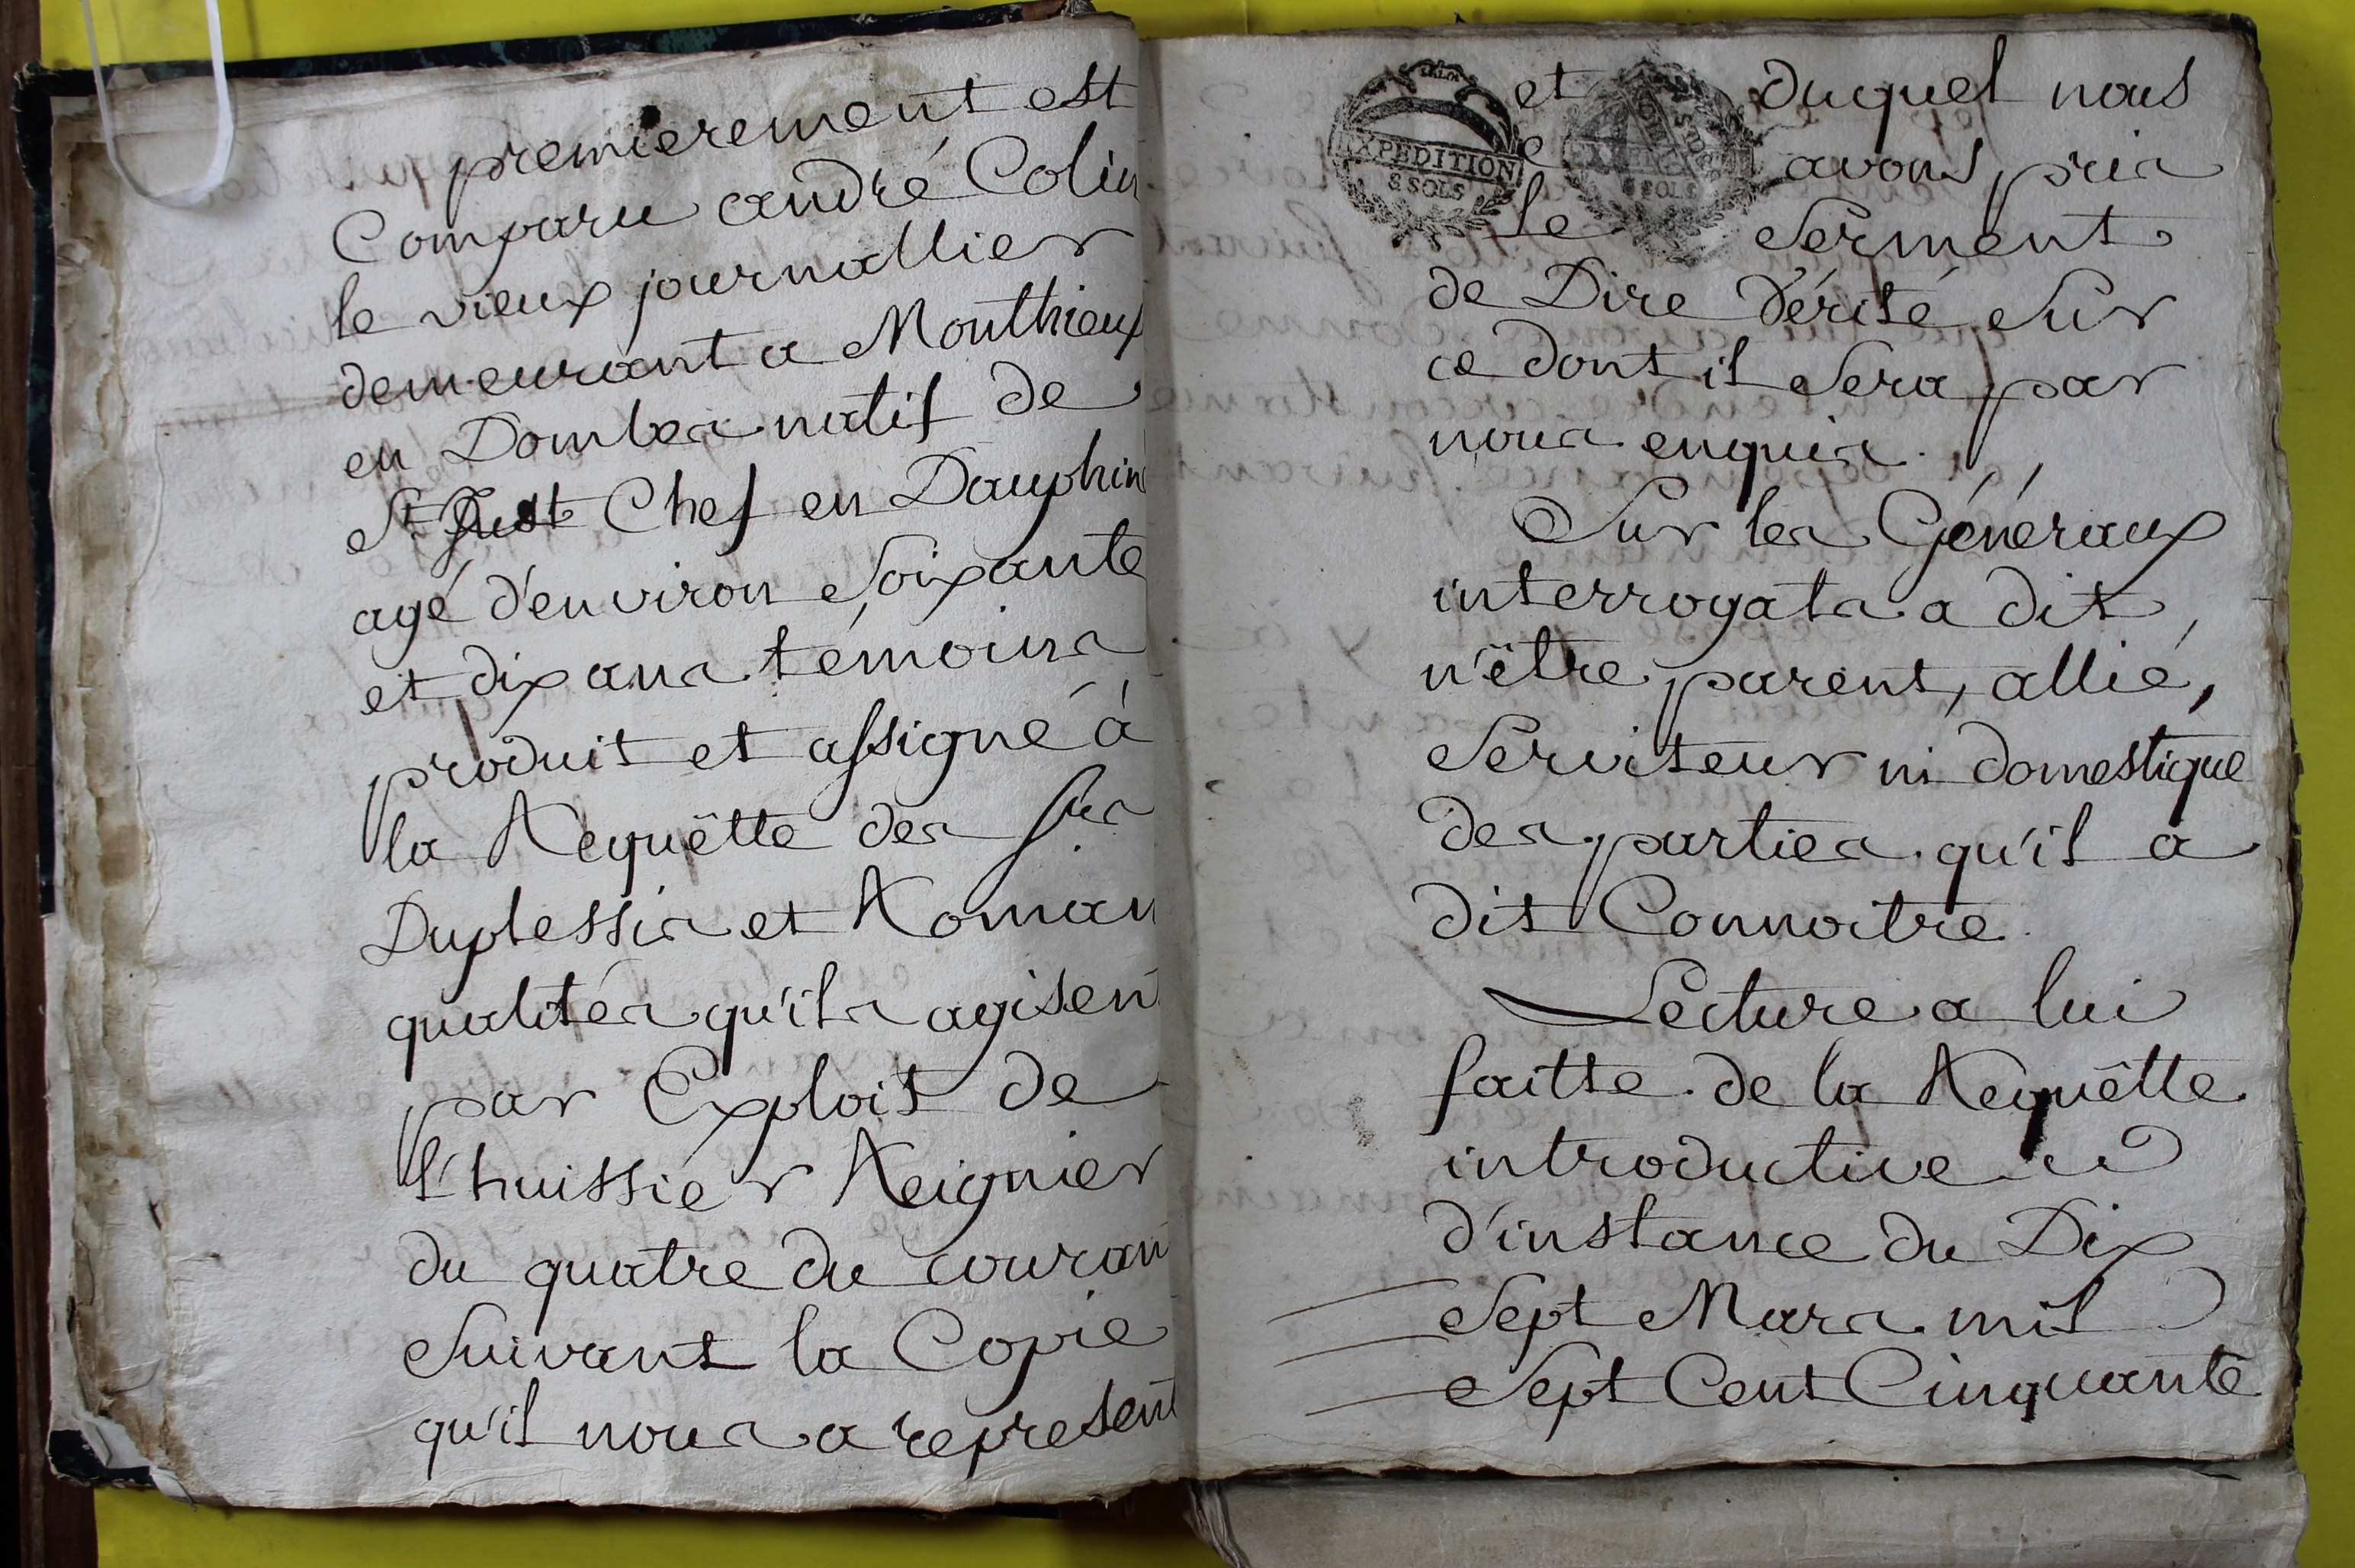 premierement est
Comparu andré Colin
le vieux journallier
demeurant a Monthieux
en Dombes natif de
St. Just Chef en Dauphiné
agé d'environ Soixante
et dix ans témoins
produit et assigné à
la Requêtte des Srs
Duplessis et Roman
qualités qu'ils agisent
par Exploit de
l'huissier Reignier
du quatre du courant
Suivant la Copie
qu'il nous a represent
et duquel nous
avons pris
le Serment
EXPEDITION
8 SOLS
8 SOLS
de Dire Vérité Sur
ce dont il Sera par
nous enquis.
Sur les Généraux
interrogats a dit
n'être parent, allié,
Serviteur ni domestique
des parties qu'il a
dit Connoitre.
Lecture a lui
faitte de la Requêtte
introductive
d'instance du Dix
Sept Mars mil
Sept Cent Cinquante